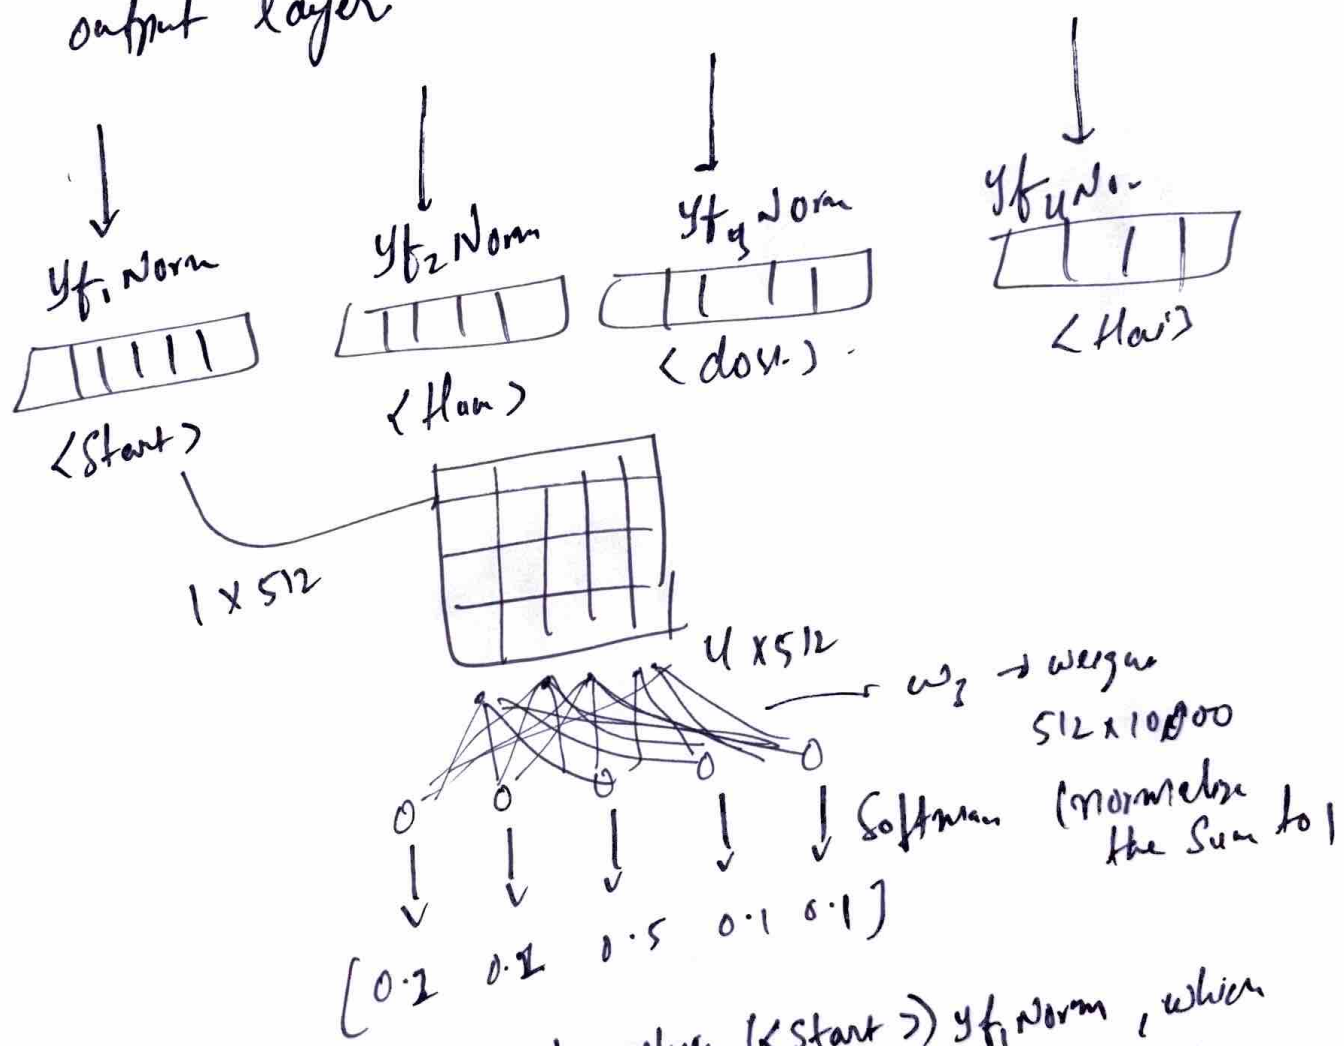 output layer
yf₁ Norm
yf₂ Norm
yf₃ Norm
yf₄ No.
<Start>
<Ham>
<dost.>
<Hai>
1 x 512
4 x 512
w₃ → weighs
512 x 10000
Softmax (normalize
the Sum to 1
[0.1 0.1 0.5 0.1 0.1]
(<Start>) yf₁ Norm, which